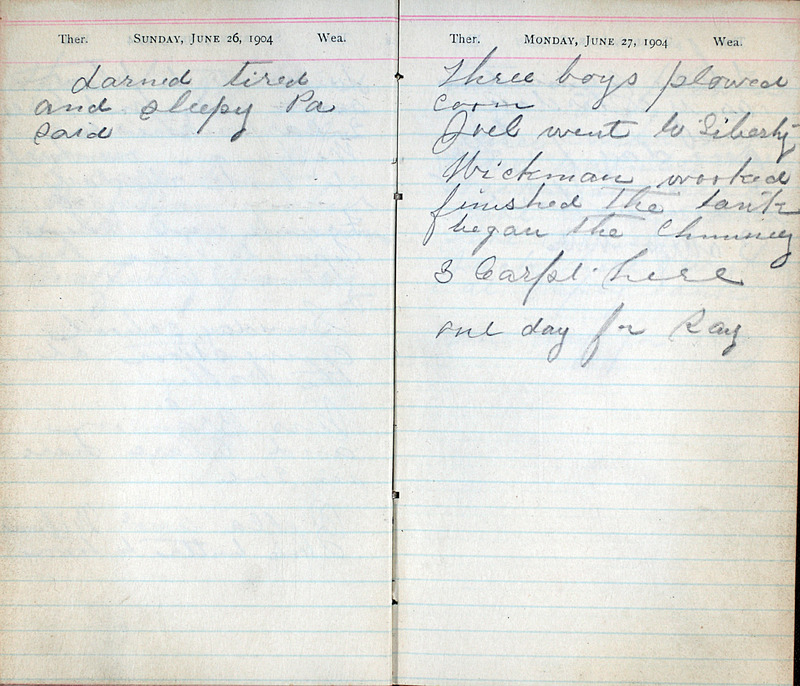 Ther. SUNDAY, JUNE 26, 1904 Wea.
darned tired
and sleepy Pa
said
Ther. MONDAY, JUNE 27, 1904 Wea.
Three boys plowed
corn
Joel went to Liberty
Wickman worked
finished the tank
began the Chimney
3 Carpt. here
one day for Ray